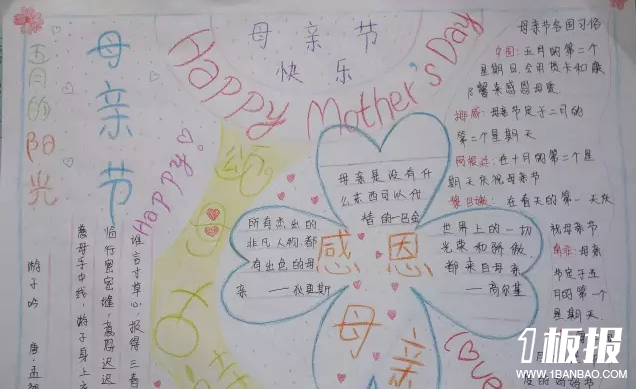 母亲节
快乐
Happy Mother's Day
五月的阳光
母亲节
Happy!
母亲节各国习俗
中国：五月的第二个
星期日，会用贺卡和康
乃馨来感恩母爱
挪威：母亲节定于二月的
第二个星期天
阿根廷：在十月的第二个星
期天庆祝母亲节
黎巴嫩：在春天的第一天庆
祝母亲节
母亲
节定于五
月的第一个
星期天
母亲是没有什
么东西可以代
替的
所有杰出的
非凡人物，都
有出色的母
亲 ——狄更斯
世界上的一切
光荣和骄傲，
都来自母亲
——高尔基
感恩
母亲
Love
游子吟 唐·孟郊
慈母手中线 游子身上
临行密密缝，意恐迟迟
谁言寸草心，报得三春
1板报
WWW.1BANBAO.COM